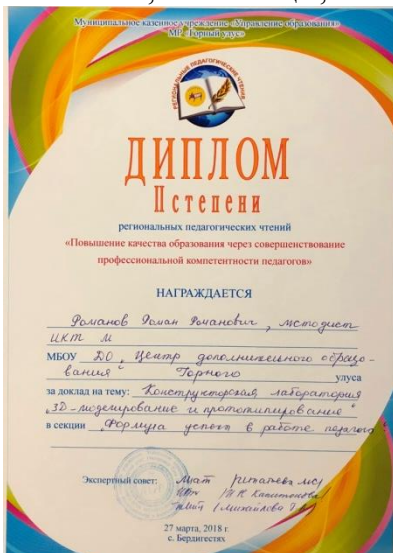 Муниципальное казенное учреждение «Управление образования»
МР «Горный улус»
РЕГИОНАЛЬНЫЕ ПЕДАГОГИЧЕСКИЕ ЧТЕНИЯ
ДИПЛОМ
II степени
региональных педагогических чтений
«Повышение качества образования через совершенствование
профессиональной компетентности педагогов»
НАГРАЖДАЕТСЯ
Романов Роман Романович, методист
ИКТ
МБОУ ДО „Центр дополнительного образо-
вания" Горного улуса
за доклад на тему: „Конструкторская лаборатория
„3D-моделирование и прототипирование"
в секции „Формула успеха в работе педагога"
Экспертный совет:
27 марта, 2018 г.
с. Бердигестях